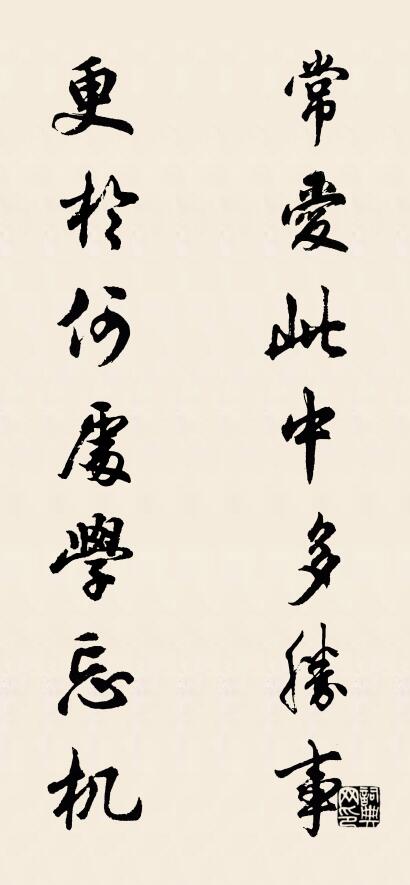 常愛此中多勝事
更於何處學忘机
詞典網印